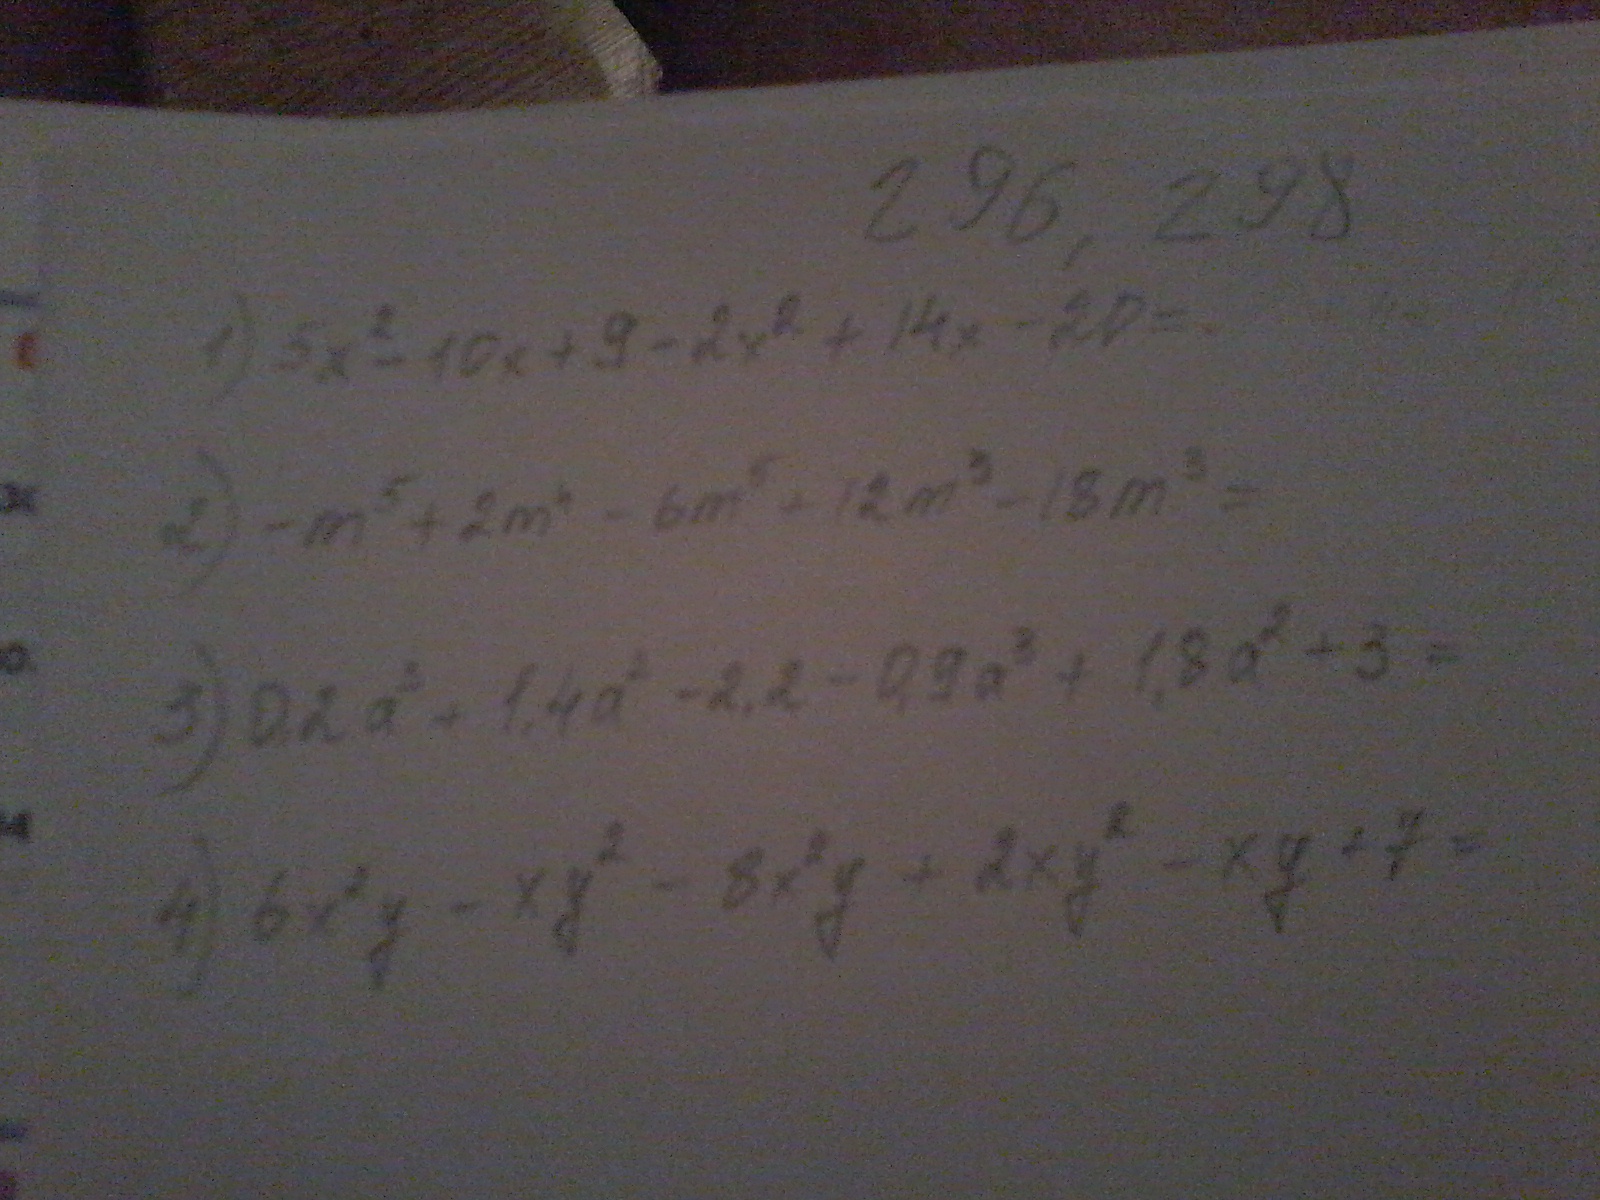 296, 298
1) 5x² - 10x + 9 - 2x² + 14x - 20 =
2) -m⁵ + 2m⁴ - 6m⁵ + 12m³ - 18m³ =
3) 0.2a³ + 1.4a² - 2.2 - 0,9a³ + 1,8a² + 3 =
4) 6x²y - xy² - 8x²y + 2xy² - xy + 7 =